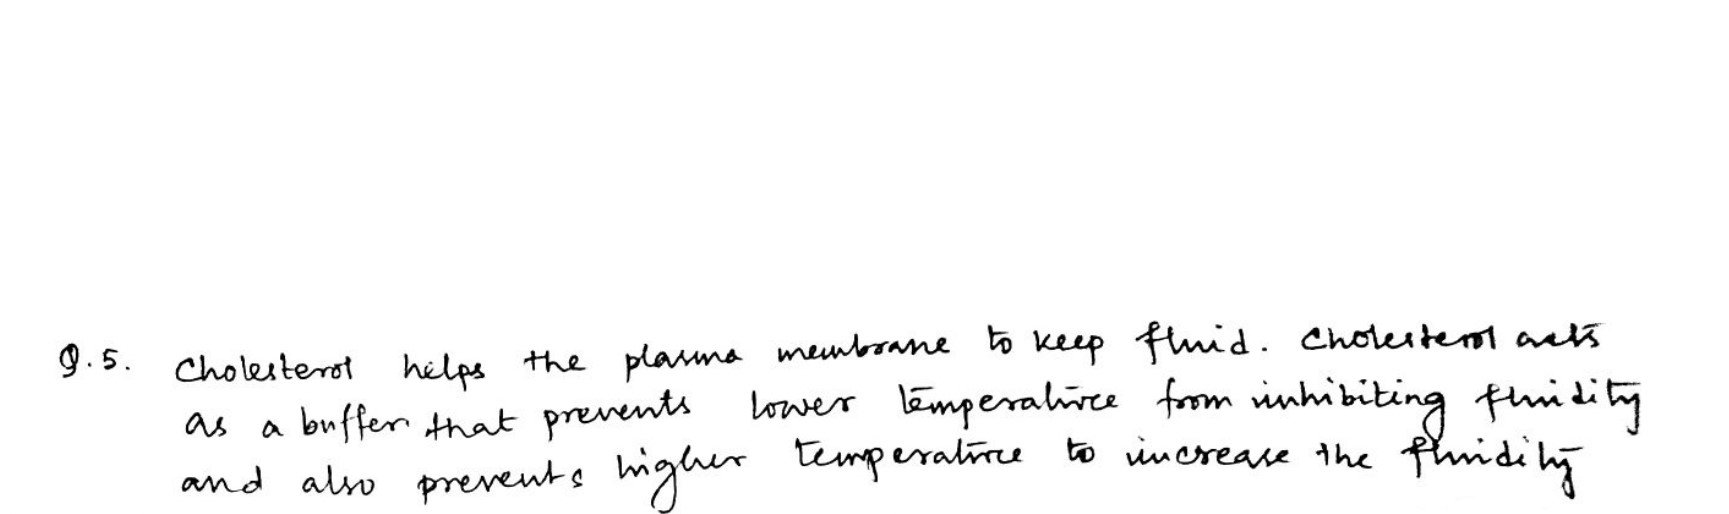 Q.5. Cholesterol helps the plasma membrane to keep fluid. Cholesterol acts
as a buffer that prevents lower temperature from inhibiting fluidity
and also prevents higher temperature to increase the fluidity